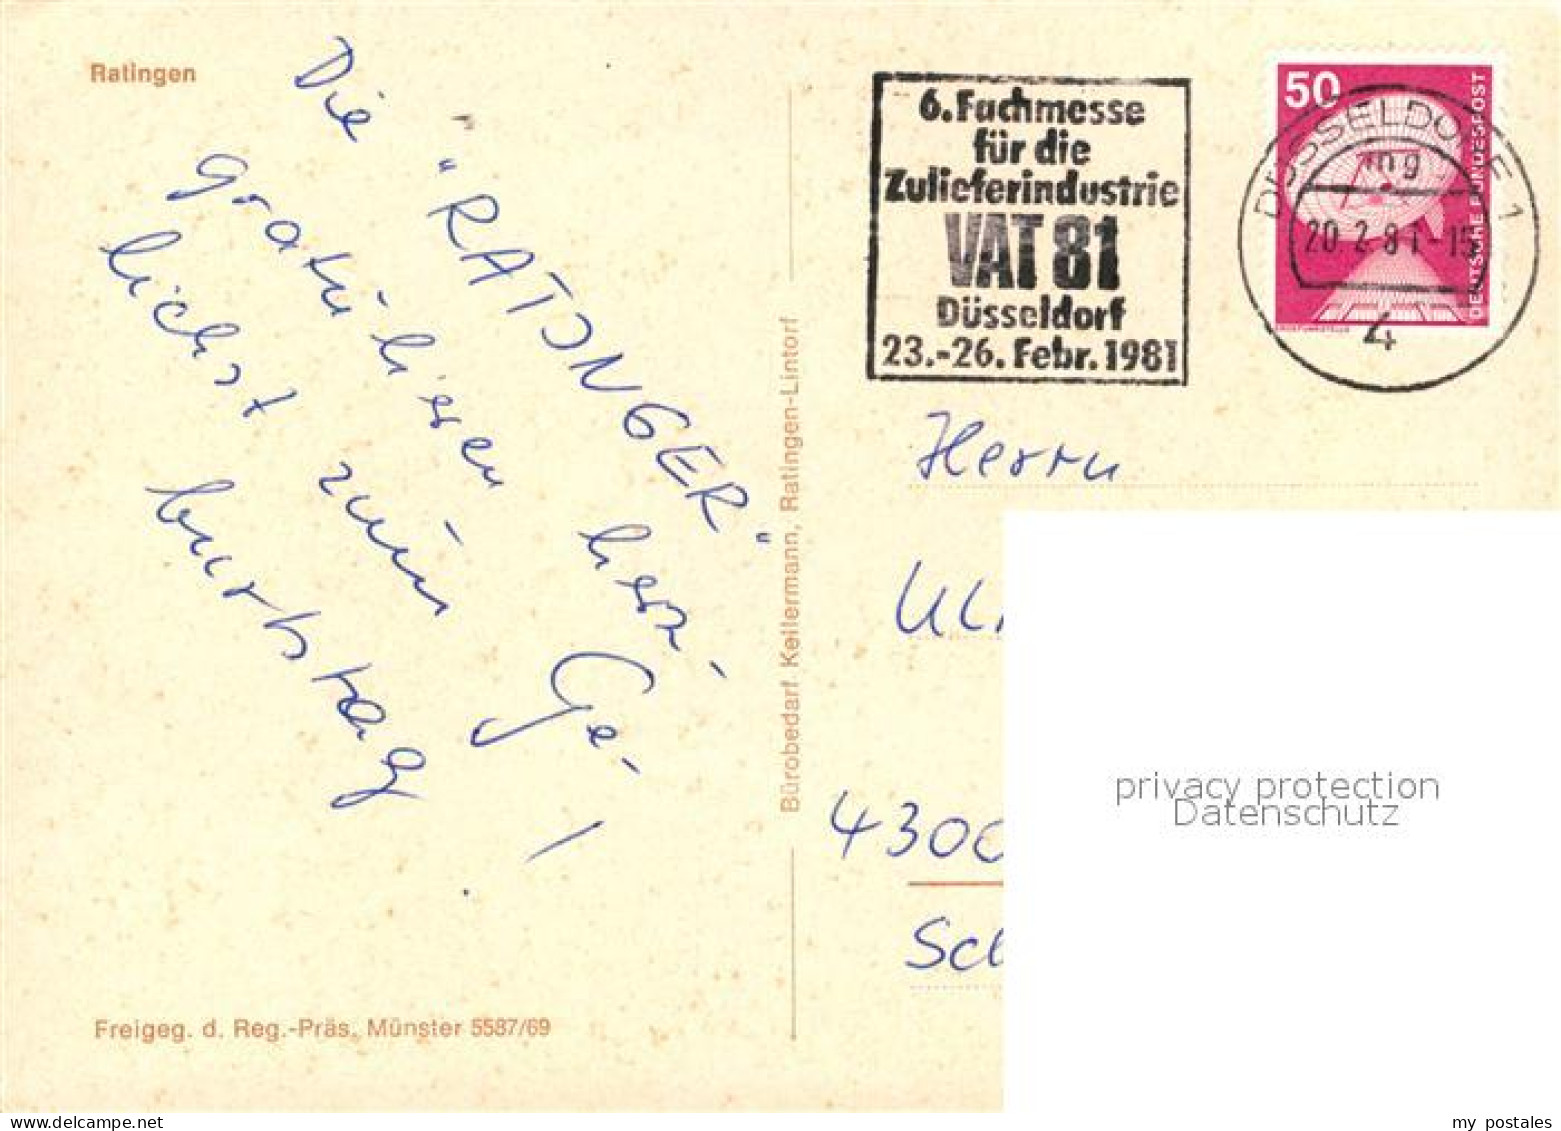 Ratingen
Die
"RATINGER"
gratulieren herz-
lichst zum Ge-
burtstag !
Freigeg. d. Reg.-Präs. Münster 5587/69
Bürobedarf Kellermann, Ratingen-Lintorf
6. Fachmesse
für die
Zulieferindustrie
VAT 81
Düsseldorf
23.-26. Febr. 1981
50
DEUTSCHE BUNDESPOST
DÜSSELDORF 1
mg
20.2.81-15
4
Herrn
4300
privacy protection
Datenschutz
my postales